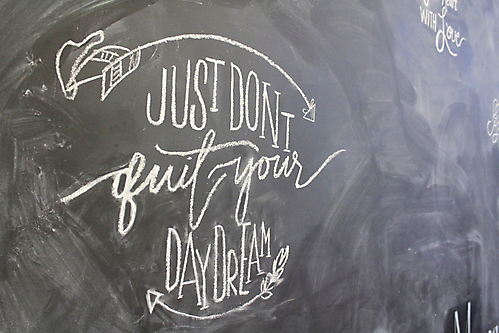 JUST DONT
quit your
DAYDREAM
WITH Love